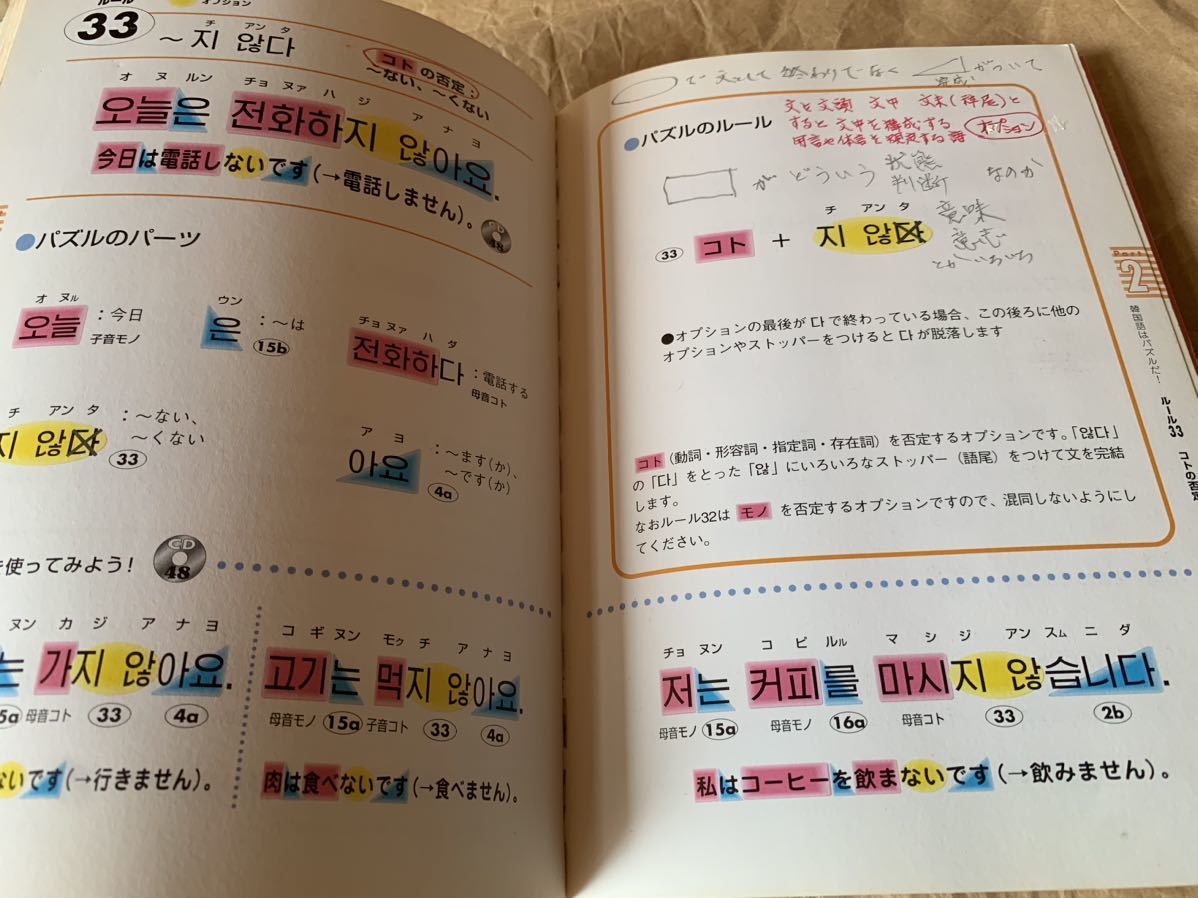 ルール
33
オプション
チ アンタ
~지 않다
コトの否定:
~ない、~くない
オ ヌルン チョ ヌァ ハ ジ ア ナ ヨ
오늘은 전화하지 않아요.
今日は電話しないです(→電話しません)。
CD
48
●パズルのパーツ
オ ヌル
오늘
:今日
子音モノ
ウン
은
:~は
15b
チョ ヌァ ハ ダ
전화하다
:電話する
母音コト
チ アン タ
지 않다
:~ない、
~くない
33
ア ヨ
아요
:~ます(か)、
~です(か)
4a
を使ってみよう!
CD
48
ヌン カ ジ ア ナ ヨ
는 가지 않아요.
5a 母音コト 33 4a
ないです(→行きません)。
コ ギ ヌン モㇰ チ ア ナ ヨ
고기는 먹지 않아요.
母音モノ 15a 子音コト 33 4a
肉は食べないです(→食べません)。
で 文として 終わりでなく がついて
文を文頭 文中 文末(語尾)と
すると 文中を構成する
用言や体言を する語
オプション
●パズルのルール
がどういう 状態 なのか
判断
意味
意志
とかいろいろ
チ アン タ
33 コト + 지 않다
●オプションの最後が다で終わっている場合、この後ろに他の
オプションやストッパーをつけると다が脱落します
コト(動詞・形容詞・指定詞・存在詞)を否定するオプションです。「않다」
の「다」をとった「않」にいろいろなストッパー(語尾)をつけて文を完結
します。
なおルール32は モノ を否定するオプションですので、混同しないようにし
てください。
チョ ヌン コ ピ ルㇽ マ シ ジ アン スㇺ ニ ダ
저는 커피를 마시지 않습니다.
母音モノ 15a 母音モノ 16a 母音コト 33 2b
私はコーヒーを飲まないです(→飲みません)。
Part
2
韓国語はパズルだ!
ルール33
コトの否定